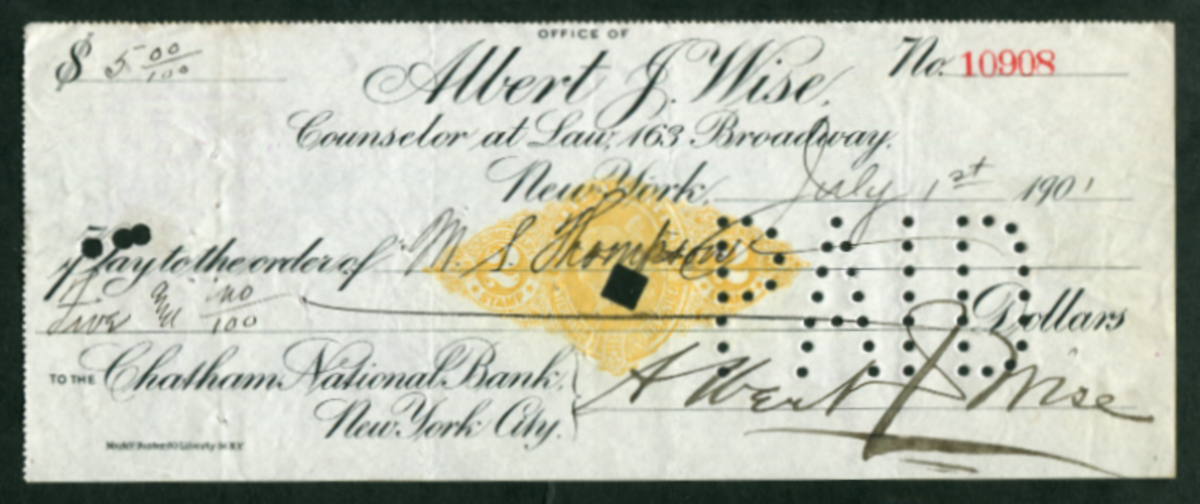 OFFICE OF
$ 5 00/100
Albert J. Wise,
No. 10908
Counselor at Law, 163 Broadway.
New York, July 1st 1901
Pay to the order of M. S. Thompson
STAMP
Five and no/100 Dollars
PAID
TO THE Chatham National Bank,
New York City.
Albert J Wise